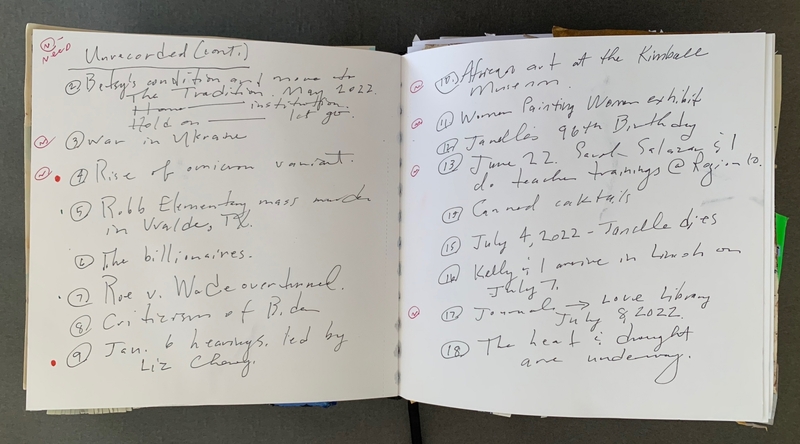 N-
NEED
Unrecorded (cont.)
② Betsy's condition and move to
The Tradition. May 2022.
Home —— institution.
Hold on —— let go.
N ③ war in Ukraine
N ④ Rise of omicron variant.
⑤ Robb Elementary mass murder
in Uvalde, TX.
⑥ The billionaires.
⑦ Roe v. Wade overturned.
⑧ Criticism of Biden
⑨ Jan. 6 hearings, led by
Liz Cheney.
N ⑩ African art at the Kimball
Museum.
N ⑪ Women Painting Women exhibit
⑫ Janelle's 96th Birthday
N ⑬ June 22. Sarah Salazar & I
do teacher trainings @ Region 10.
⑭ Canned cocktails
⑮ July 4, 2022 - Janelle dies
⑯ Kelly & I arrive in Lincoln on
July 7.
N ⑰ Journals → Love Library
July 8, 2022.
⑱ The heat & drought
are underway.